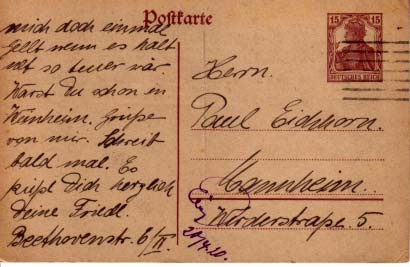 Postkarte
mich doch einmal
gellt wenn es halt
nt so teuer wär.
Warst Du schon in
Weinheim. Grüße
von mir. Schreib
bald mal. Es
grüßt Dich herzlich
Deine Friedl.
Beethovenstr. 6/IV.
15 15
DEUTSCHES REICH
Herrn.
Paul Eichhorn.
Mannheim.
Werderstraße 5.